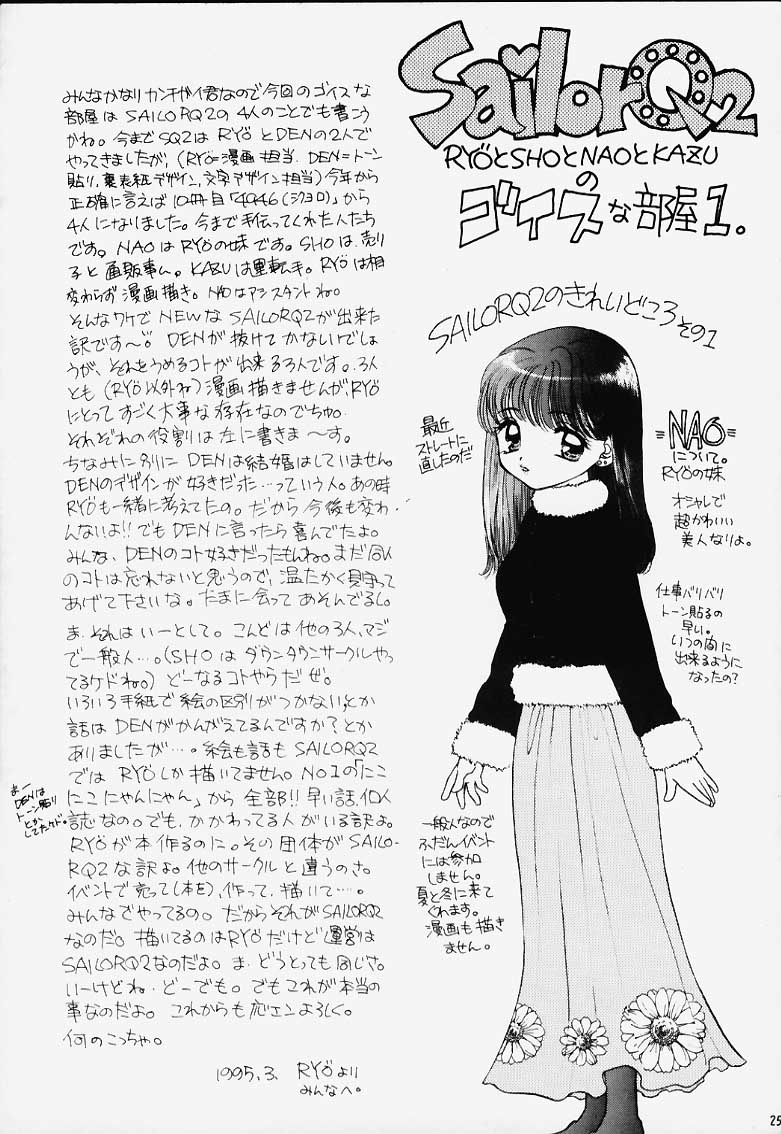 SailorQ2
RYÖとSHOとNAOとKAZU
の
ゴイスな部屋1.
みんなかなりカンチガイ君なので今回のゴイスな
部屋はSAILORQ2の4人のことでも書こう
かね。今までSQ2はRYÖとDENの2人で
やってきましたが、(RYÖ=漫画担当. DEN=トーン
貼り,裏表紙デザイン,文字デザイン担当)今年から
正確に言えば10冊目「4046(シクヨロ)」から
4人になりました。今まで手伝ってくれた人たち
です。NAOはRYÖの妹です。SHOは、売り
子と通販事ム。KAZUは運転手。RYÖは相
変わらず漫画描き。NAOはアシスタントね。
そんなワケでNEWなSAILORQ2が出来た
訳です〜。DENが抜けてかないでしょ
うが、それをうめるコトが出来る3人です。3人
とも(RYÖ以外ね)漫画描きませんが、RYÖ
にとってすごく大事な存在なのでちゅ。
それぞれの役割は左に書きま〜す。
ちなみに別にDENは結婚はしていません。
DENのデザインが好きだった…っていう人。あの時
RYÖも一緒に考えてたの。だから今後も変わ
んないよ!!でもDENに言ったら喜んでたよ。
みんな、DENのコト好きだったもんね。まだ同人
のコトは忘れないと思うので、温たかく見守って
あげて下さいな。たまに会ってあそんでるし。
ま、それはいーとして。こんどは他の3人、マジ
で一般人…。(SHOはダウンタウンサークルやっ
てるケドね。)どーなるコトやらだぜ。
いろいろ手紙で絵の区別がつかない、とか
話はDENがかんがえてるんですか?とか
ありましたが…。絵も話もSAILORQ2
ではRYÖしか描いてません。NO1の「にこ
にこにゃんにゃん」から全部!!早い話、個人
誌なの。でも、かかわってる人がいる訳よ。
RYÖが本作るのに。その団体がSAILO-
RQ2な訳よ。他のサークルと違うのさ。
イベントで売って(本を)、作って、描いて…。
みんなでやってるの。だからそれがSAILORQ2
なのだ。描いてるのはRYÖだけど運営は
SAILORQ2なのだよ。ま、どうとっても同じさ。
いーけどね、どーでも。でもこれが本当の
事なのだよ。これからも応エンよろしく。
何のこっちゃ。
まー
DENは
トーン貼り
とか
してたケド。
1995.3. RYÖより
みんなへ。
SAILORQ2のきれいどころその1
最近
ストレートに
直したのだ
=NAO=
について。
RYÖの妹
オシャレで
超かわいい
美人なりよ。
仕事バリバリ
トーン貼るの
早い。
いつの間に
出来るように
なったの?
一般人なので
ふだんイベント
には参加
しません。
夏と冬に来て
くれます。
漫画も描き
ません。
25